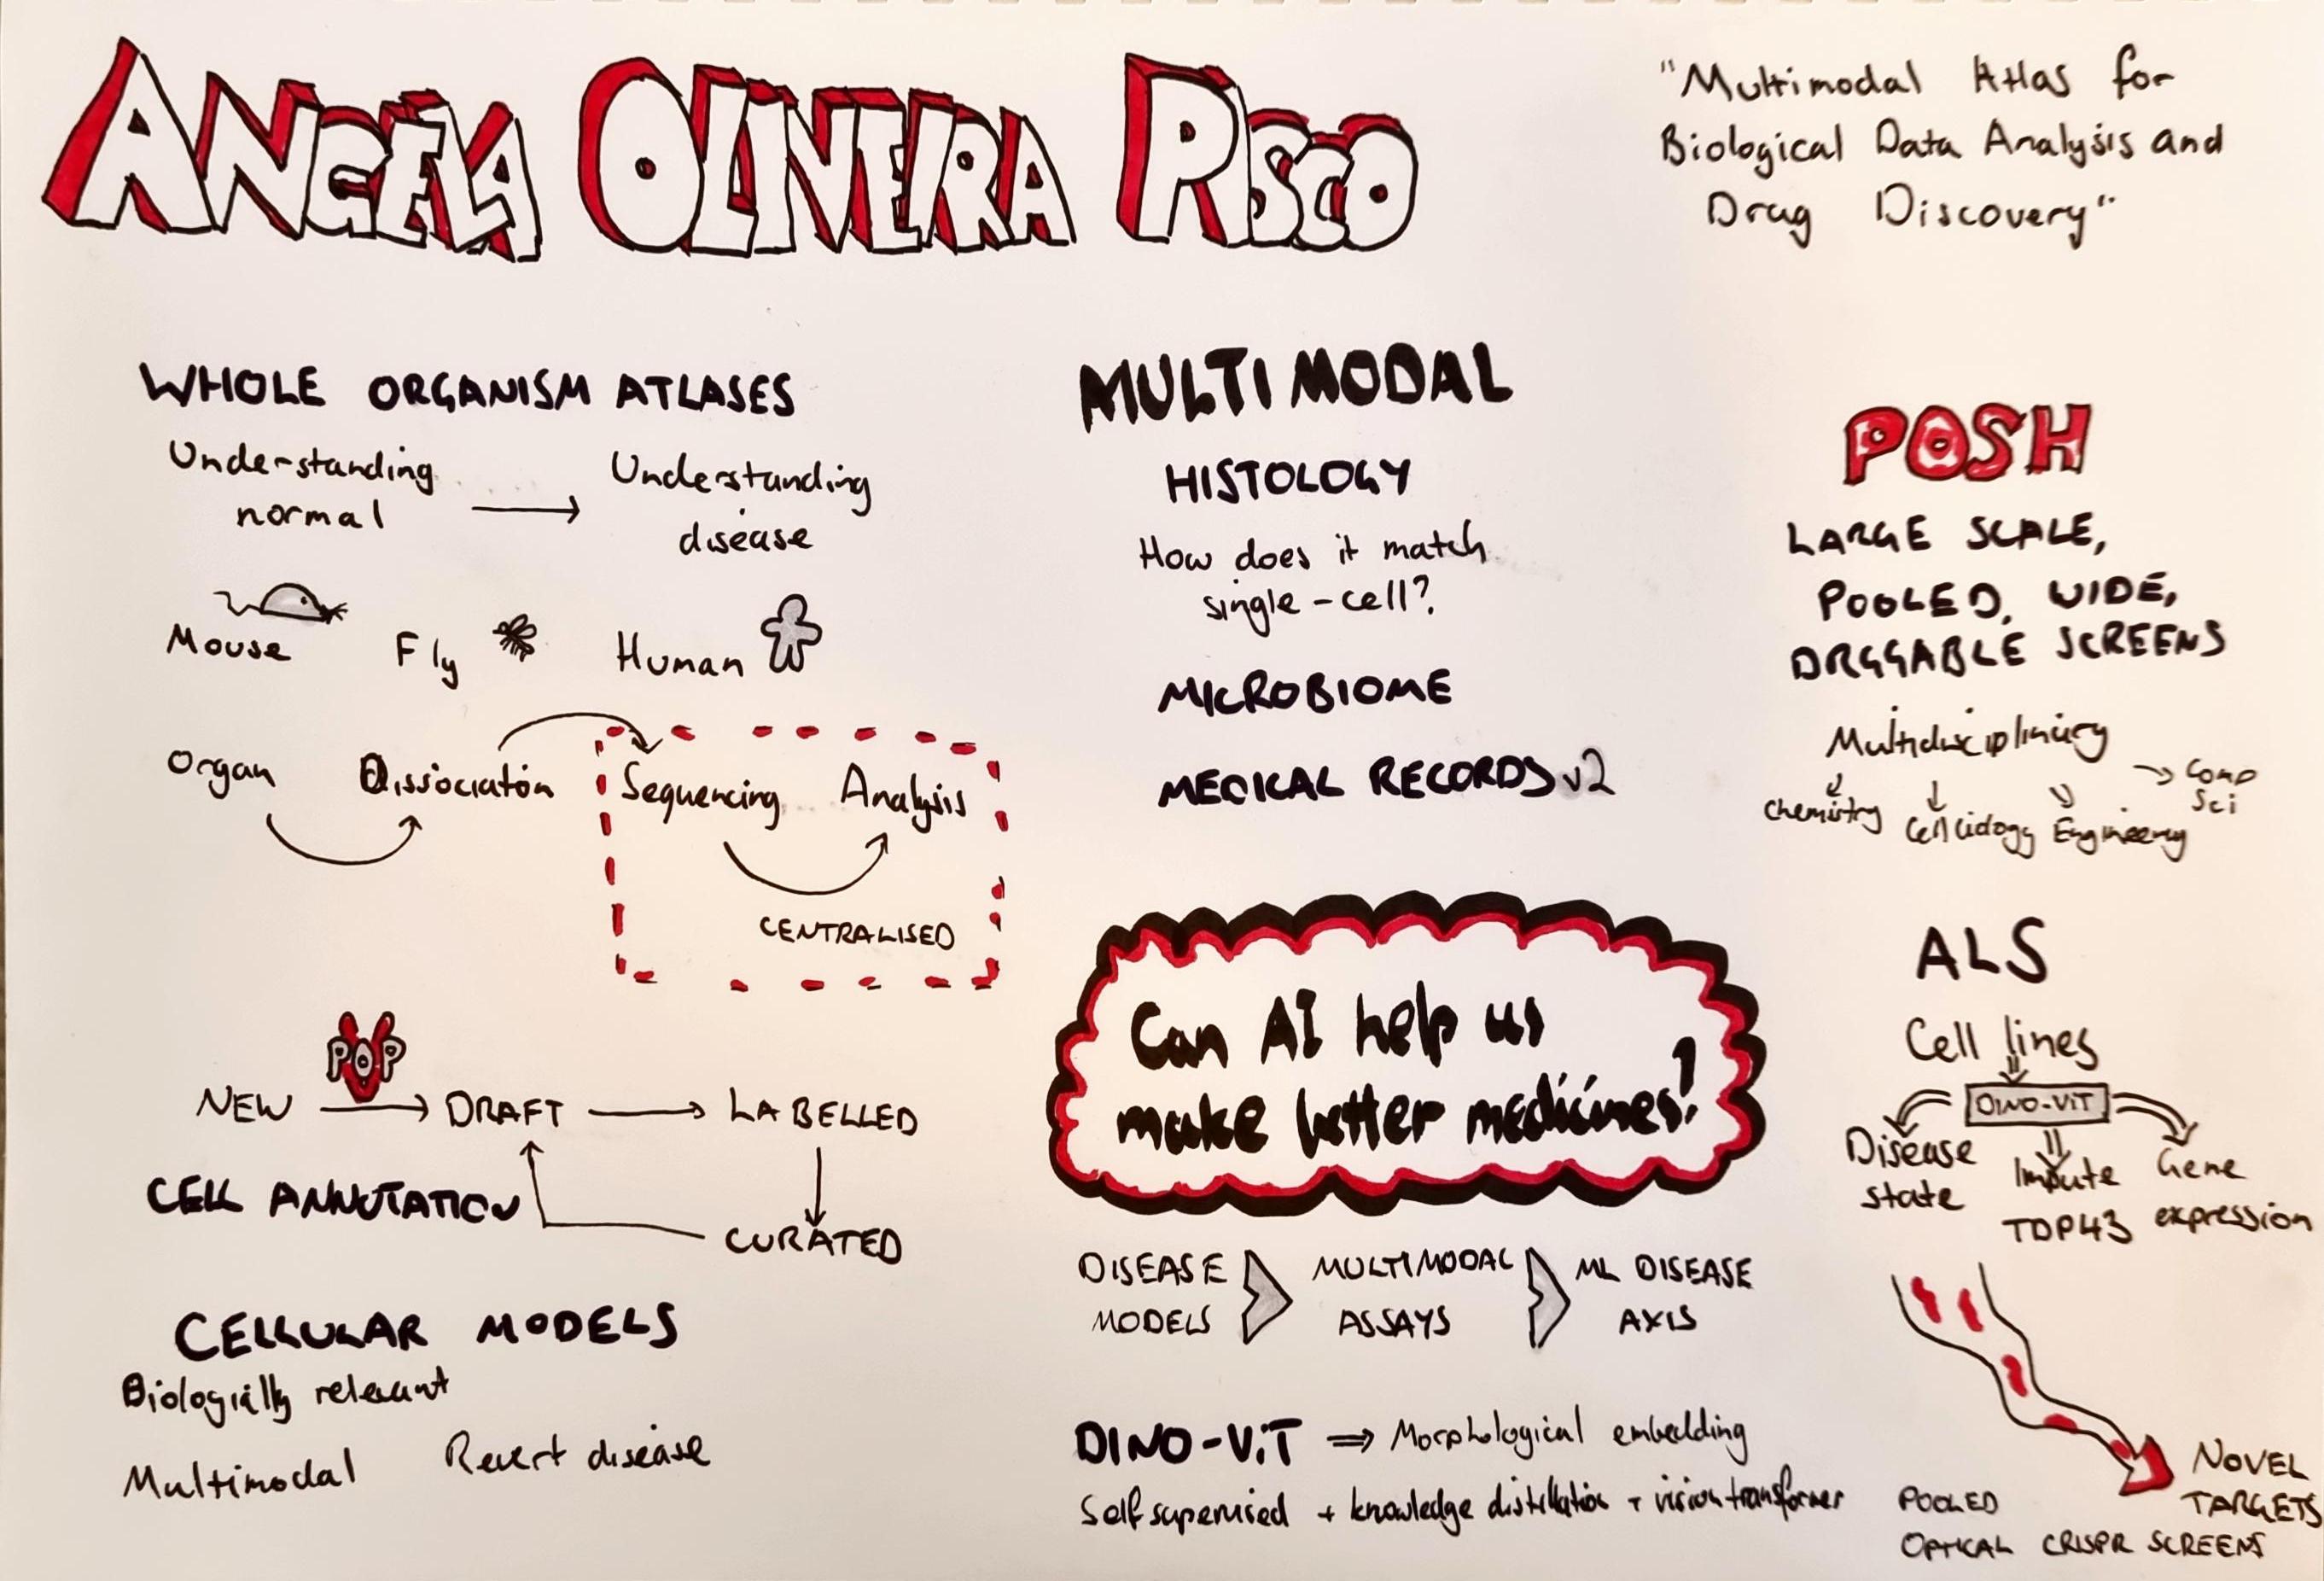 ANGELA OLIVEIRA PISCO
"Multimodal Atlas for
Biological Data Analysis and
Drug Discovery"
WHOLE ORGANISM ATLASES
Understanding
normal
Understanding
disease
Mouse
Fly
Human
Organ
Dissociation
Sequencing
Analysis
CENTRALISED
POPV
NEW
DRAFT
LABELLED
CELL ANNOTATION
CURATED
CELLULAR MODELS
Biologically relevant
Multimodal
Revert disease
MULTIMODAL
HISTOLOGY
How does it match
single-cell?
MICROBIOME
MEDICAL RECORDS v2
Can AI help us
make better medicines?
DISEASE
MODELS
MULTIMODAL
ASSAYS
ML DISEASE
AXIS
DINO-ViT ⇒ Morphological embedding
Self supervised + knowledge distillation + vision transformer
POSH
LARGE SCALE,
POOLED, WIDE,
DRGGABLE SCREENS
Multidisciplinary
Chemistry
Cell biology
Engineering
Comp
Sci
ALS
Cell lines
DINO-ViT
Disease
state
Impute
TDP43
Gene
expression
NOVEL
TARGETS
POOLED
OPTICAL CRISPR SCREENS